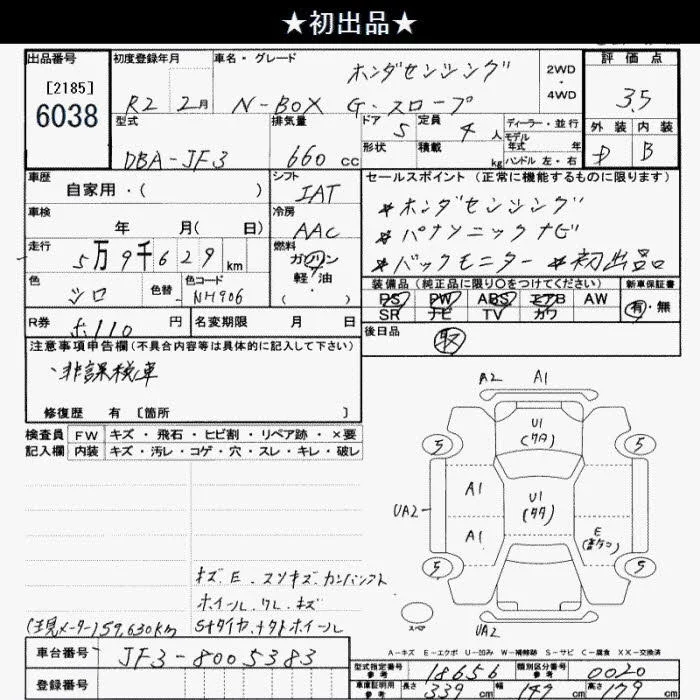 ★初出品★
出品番号
[2185]
6038
初度登録年月
R2 2月
車名・グレード
ホンダセンシング
N-BOX G・スロープ
2WD
・
4WD
評価点
3.5
外装 内装
D B
型式
DBA-JF3
排気量
660 cc
ドア 5
定員 4 人
形状
積載 kg
ディーラー・並行
モデル
年式 年
ハンドル 左・右
車歴
自家用・( )
シフト
IAT
セールスポイント (正常に機能するものに限ります)
*ホンダセンシング
*パナソニックナビ
*バックモニター *初出品
車検
年 月( 日)
冷房
AAC
走行
5万9千629 km
燃料
ガソリン
軽・油
・
色
シロ
色替
色コード
NH906
装備品 (純正品に限り○をつけてください)
PS PW ABS エアB AW
SR ナビ TV カワ
新車保証書
有・無
R券
ホ110 円
名変期限 月 日
後日品
取
注意事項申告欄(不具合内容等は具体的に記入して下さい)
・非課税車
修復歴 有 [箇所 ]
検査員
記入欄
FW キズ・飛石・ヒビ割・リペア跡・×要
内装 キズ・汚レ・コゲ・穴・スレ・キレ・破レ
A2 A1
U1
5 5
A1
U1
UA2
A1
E
5 5
スペア
UA2
キズ.E.
ホイール.ワレ.キズ
(現メーター159,630km
A-キズ E-エクボ U-凹み W-補修跡 S-サビ C-腐食 XX-交換済
車台番号
JF3-8005383
登録番号
型式指定番号
参考
18656
類別区分番号
参考
0020
車庫証明用
参考
長さ 339 cm
幅 147 cm
高さ 179 cm